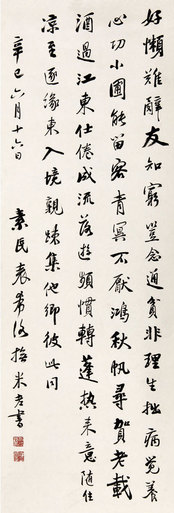 好懶難辭友知窮豈念通貧非理生拙病覺養
心功小圃能留客青冥不厭鴻秋帆尋賀老載
酒過江東仕倦成流落遊頻慣轉蓬熱来意随住
凉至逐緣東入境親疎集他鄉彼此同
辛巳六月十六日 素民袁希洛撫米老書